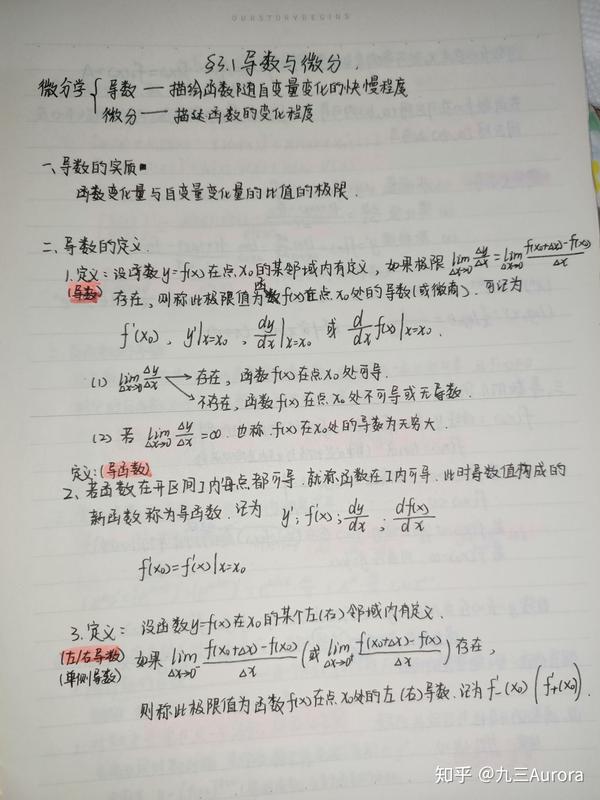 OURSTORYBEGINS
§3.1 导数与微分.
微分学 { 导数 — 描绘函数随自变量变化的快慢程度
微分 — 描述函数的变化程度
一、导数的实质
函数变化量与自变量变化量的比值的极限.
二、导数的定义.
1.定义:设函数y=f(x)在点x₀的某邻域内有定义,如果极限 lim_{Δx→0} Δy/Δx = lim_{Δx→0} (f(x₀+Δx)-f(x₀))/Δx
(导数) 存在,则称此极限值为函数f(x)在点x₀处的导数(或微商).可记为
f'(x₀), y'|x=x₀, dy/dx|x=x₀ 或 d/dx f(x)|x=x₀.
(1) lim_{Δx→0} Δy/Δx → 存在,函数f(x)在点x₀处可导.
→ 不存在,函数f(x)在点x₀处不可导或无导数.
(2) 若 lim_{Δx→0} Δy/Δx = ∞. 也称f(x)在x₀处的导数为无穷大.
定义:(导函数)
2、若函数在开区间I内每点都可导.就称函数在I内可导.此时导数值构成的
新函数称为导函数.记为 y'; f'(x); dy/dx ; df(x)/dx
f'(x₀)=f'(x)|x=x₀
3.定义: 设函数y=f(x)在x₀的某个左(右)邻域内有定义.
(左/右导数) 如果 lim_{Δx→0⁻} (f(x₀+Δx)-f(x₀))/Δx (或 lim_{Δx→0⁺} (f(x₀+Δx)-f(x))/Δx) 存在,
(单侧导数)
则称此极限值为函数f(x)在点x₀处的左(右)导数.记为f'₋(x₀) (f'₊(x₀).
知乎 @九三Aurora